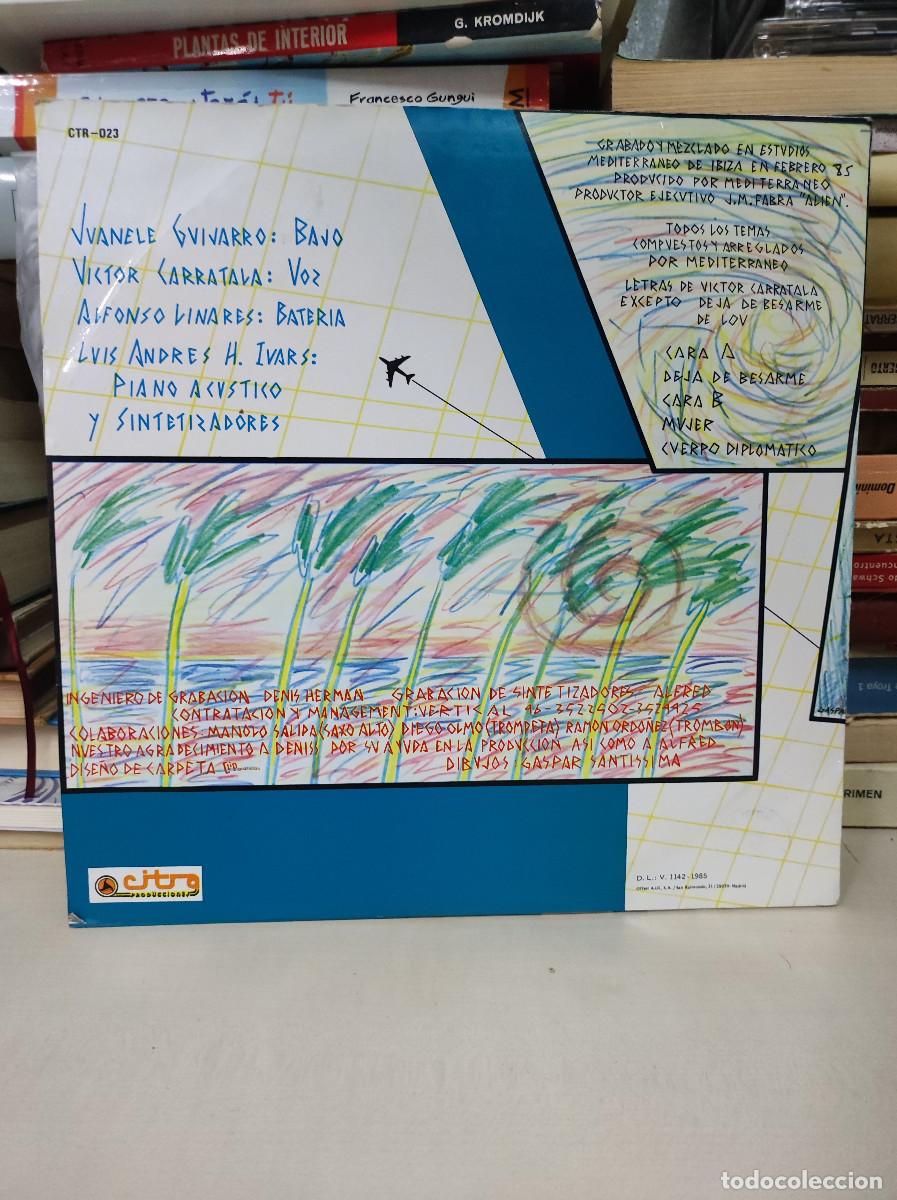 PLANTAS DE INTERIOR
G. KROMDIJK
Francesco Gungui
CTR-023
JUANELE GUIJARRO: BAJO
VICTOR CARRATALA: VOZ
ALFONSO LINARES: BATERIA
LUIS ANDRES H. IVARS:
PIANO ACUSTICO
Y SINTETIZADORES
GRABADO Y MEZCLADO EN ESTUDIOS
MEDITERRANEO DE IBIZA EN FEBRERO 85
PRODUCIDO POR MEDITERRANEO
PRODUCTOR EJECUTIVO J.M. FABRA "ALIEN".
TODOS LOS TEMAS
COMPUESTOS Y ARREGLADOS
POR MEDITERRANEO
LETRAS DE VICTOR CARRATALA
EXCEPTO DEJA DE BESARME
DE LOV
CARA A
DEJA DE BESARME
CARA B
MUJER
CUERPO DIPLOMATICO
INGENIERO DE GRABACION DENIS HERMAN GRABACION DE SINTETIZADORES - ALFRED
CONTRATACION Y MANAGEMENT: VERTICAL 96-3522502-3574925
COLABORACIONES: MANOLO SALIDA (SAXO ALTO) DIEGO OLMO (TROMPETA) RAMON ORDOÑEZ (TROMBON)
NUESTRO AGRADECIMIENTO A DENISS POR SU AYUDA EN LA PRODUCCION ASI COMO A ALFRED
DISEÑO DE CARPETA CLIP
DIBUJOS: GASPAR SANTISSIMA
citra
PRODUCCIONES
D. L.: V. 1142-1985
Offset A-10, S.A. / San Raimundo, 21 / 28039 Madrid
Troya 1
RIMEN
todocoleccion